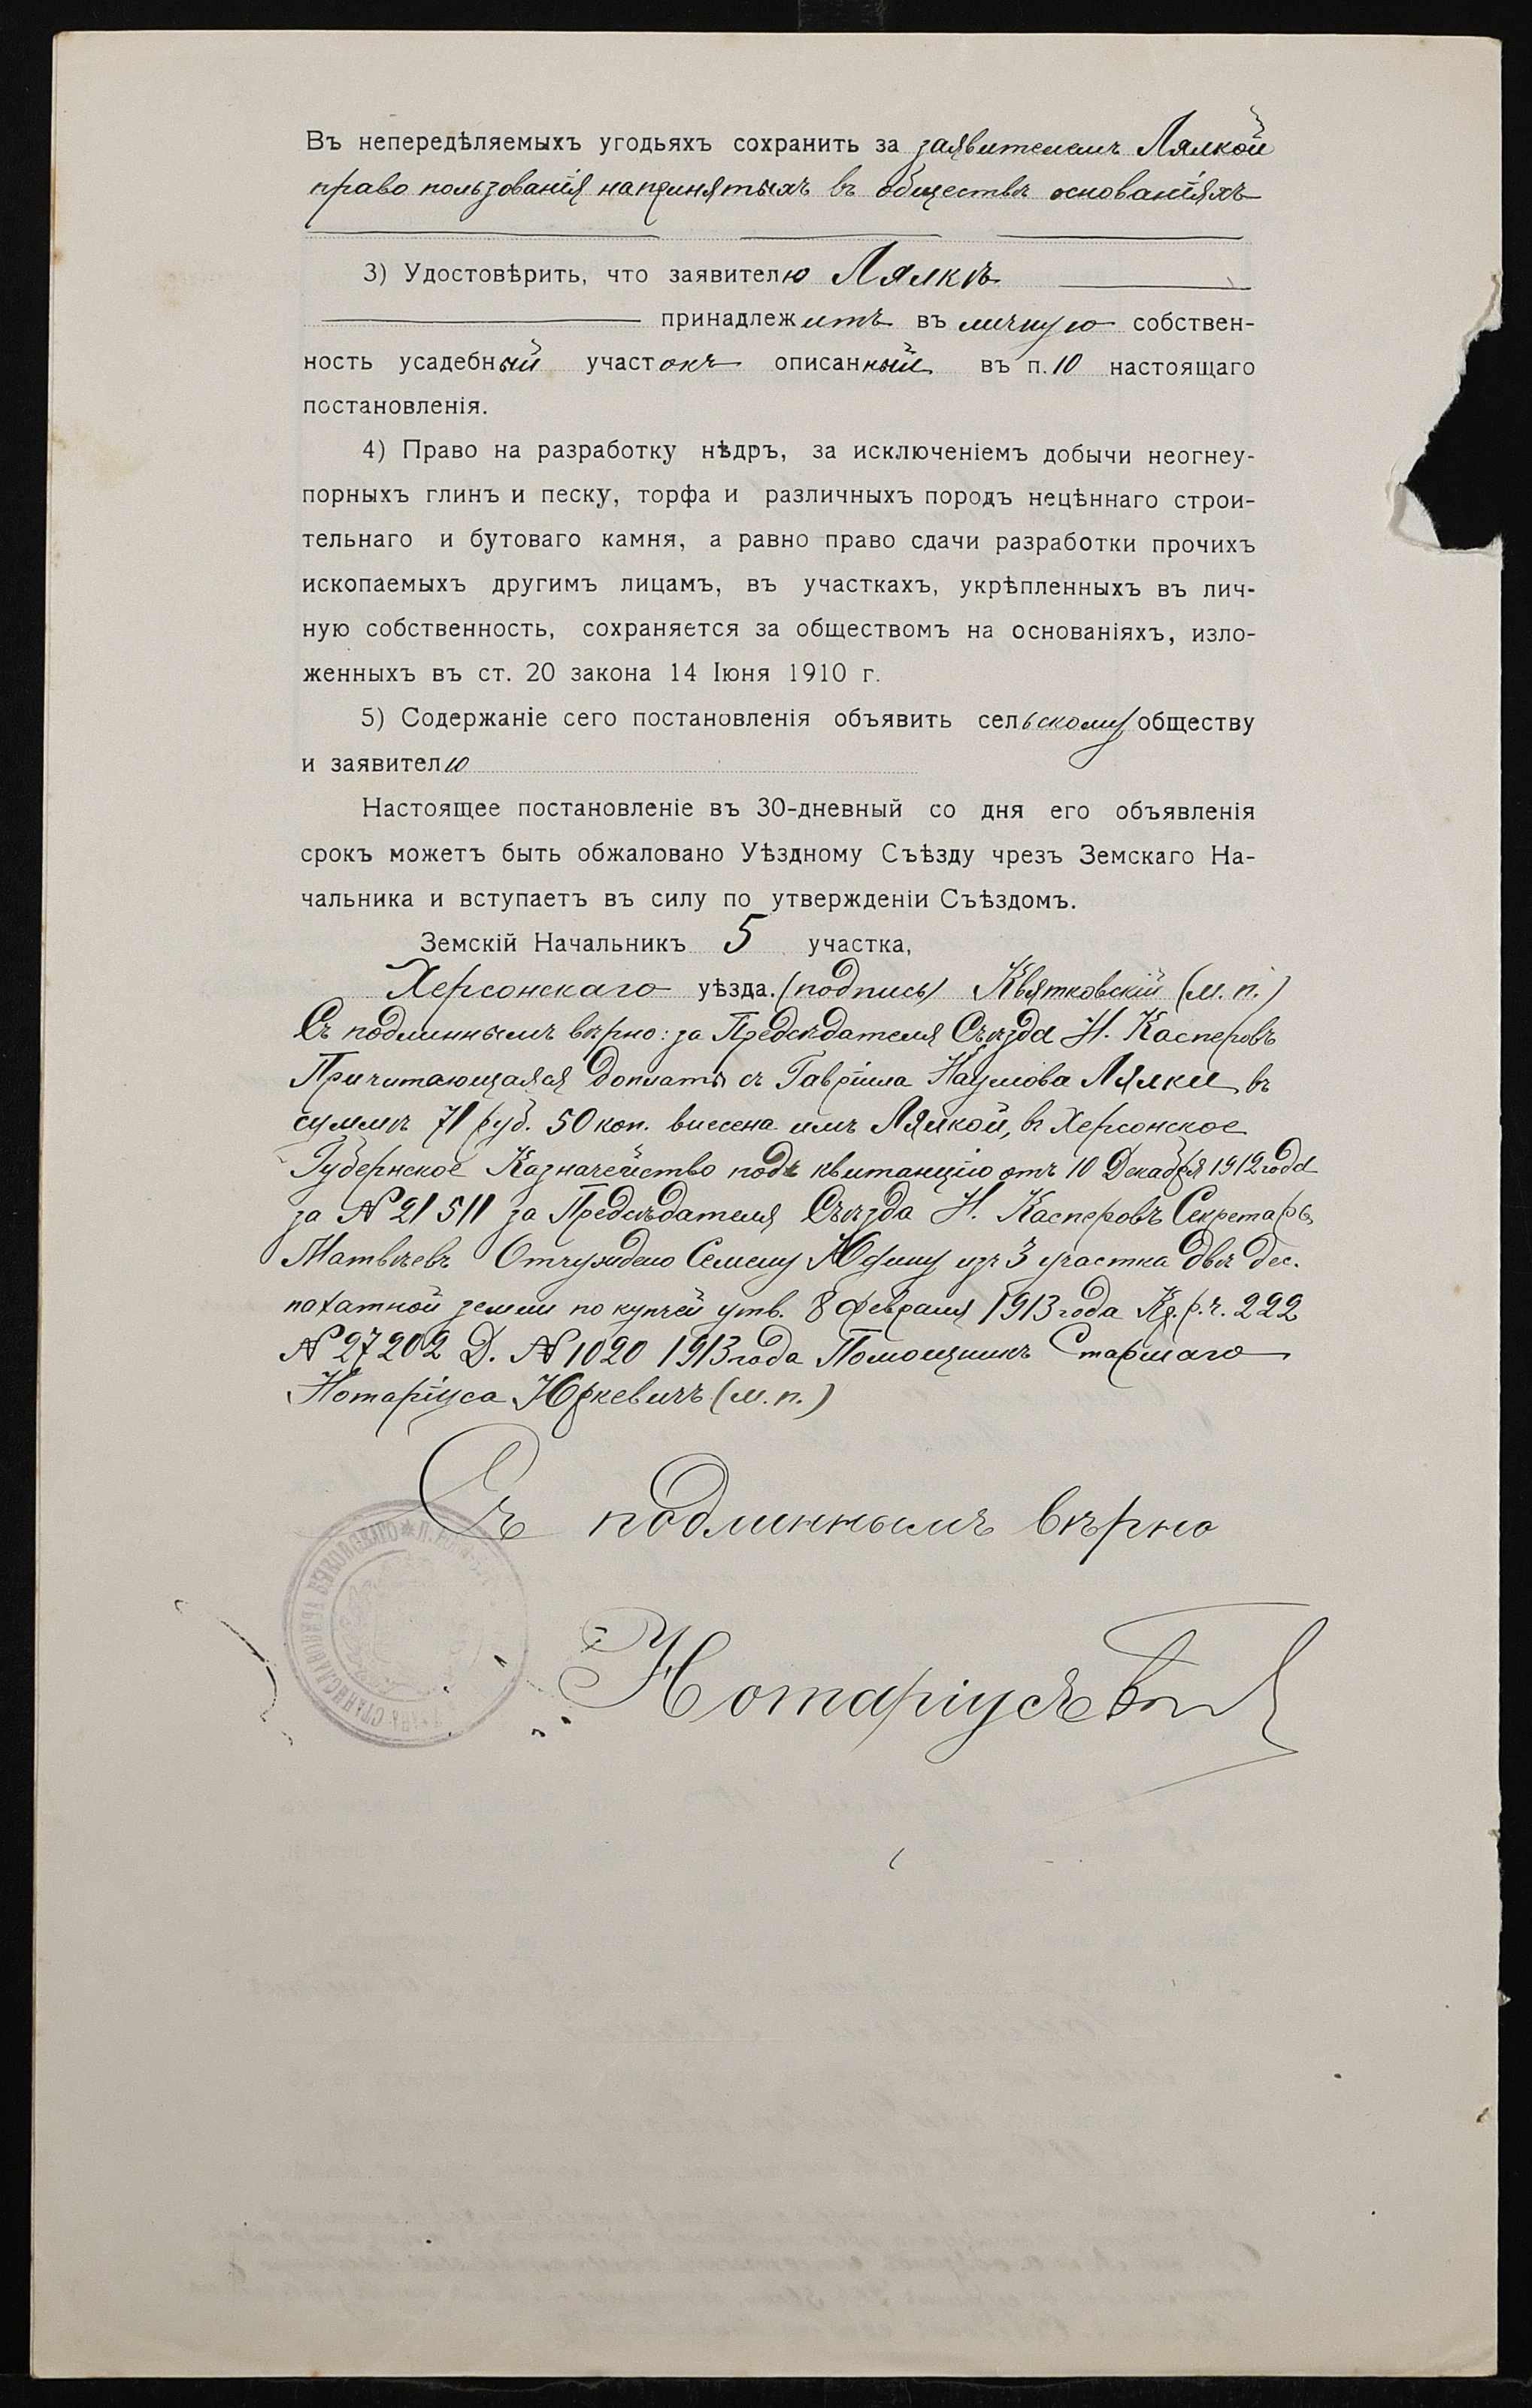 Въ непередѣляемыхъ угодьяхъ сохранить за заявителемъ Лялкой
право пользованія на принятыхъ въ обществѣ основаніяхъ
3) Удостовѣрить, что заявителю Лялкѣ
принадлежитъ въ личную собствен-
ность усадебный участокъ описанный въ п. 10 настоящаго
постановленія.
4) Право на разработку нѣдръ, за исключеніемъ добычи неогнеу-
порныхъ глинъ и песку, торфа и различныхъ породъ нецѣннаго строи-
тельнаго и бутоваго камня, а равно право сдачи разработки прочихъ
ископаемыхъ другимъ лицамъ, въ участкахъ, укрѣпленныхъ въ лич-
ную собственность, сохраняется за обществомъ на основаніяхъ, изло-
женныхъ въ ст. 20 закона 14 Іюня 1910 г.
5) Содержаніе сего постановленія объявить сельскому обществу
и заявителю
Настоящее постановленіе въ 30-дневный со дня его объявленія
срокъ можетъ быть обжаловано Уѣздному Съѣзду чрезъ Земскаго На-
чальника и вступаетъ въ силу по утвержденіи Съѣздомъ.
Земскій Начальникъ 5 участка,
Херсонскаго уѣзда. (подпись) Квятковскій (м. п.)
Съ подлиннымъ вѣрно: за Предсѣдателя Съѣзда Н. Касперовъ
Причитающаяся доплата съ Гавріила Наумова Лялки въ
суммѣ 71 руб. 50 коп. внесена имъ Лялкой, въ Херсонское
Губернское Казначейство подъ квитанцію отъ 10 Декабря 1912 года
за № 21511 за Предсѣдателя Съѣзда Н. Касперовъ Секретарь
Матвѣевъ Отчуждено Семену Юдину изъ 3 участка двѣ дес.
пахатной земли по купчей утв. 8 февраля 1913 года Кр. р. ч. 222
№ 27202 Д. № 1020 1913 года Помощникъ Старшаго
Нотаріуса Юркевичъ (м. п.)
Съ подлиннымъ вѣрно
Нотаріусъ
СТАНИСЛАВОВИЧА БУКОВЕЦКАГО